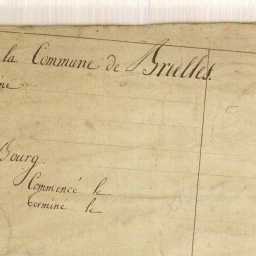 la Commune de Bruelles.
ne
Bourg.
Commencé le
termine le